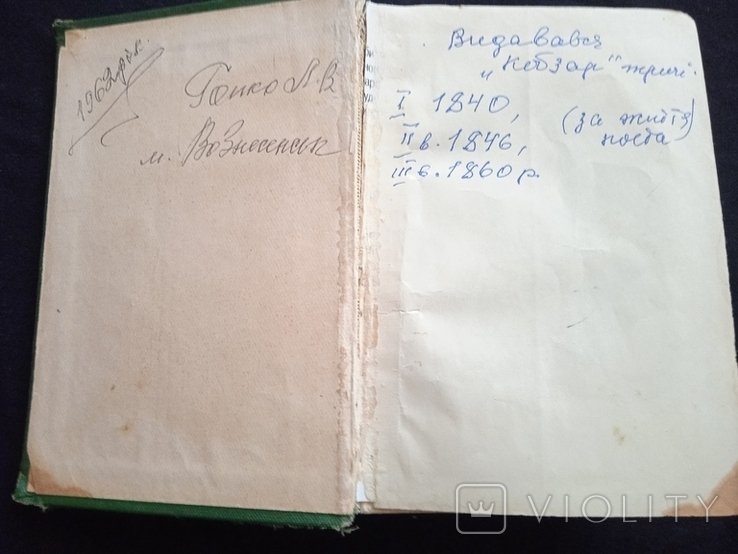 1962 рік.
Гопко Л.В
м. Вознесенськ
Видавався
„Кобзар" тричі.
I 1840,
II в. 1846,
III в. 1860 р.
(за життя
поета)
VIOLITY